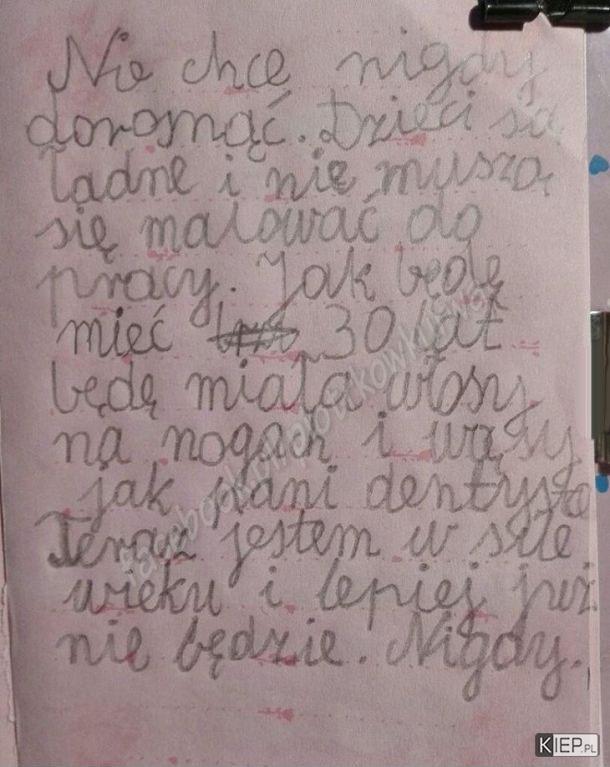 Nie chcę nigdy
doromąć. Dzieci są
ładne i nie muszą
się malować do
pracy. Jak będę
mieć 30 lat
będę miała włosy
na nogach i wąsy
jak pani dentysta
Teraz jestem w sile
wieku i lepiej już
nie będzie. Nigdy.
KIEP.PL